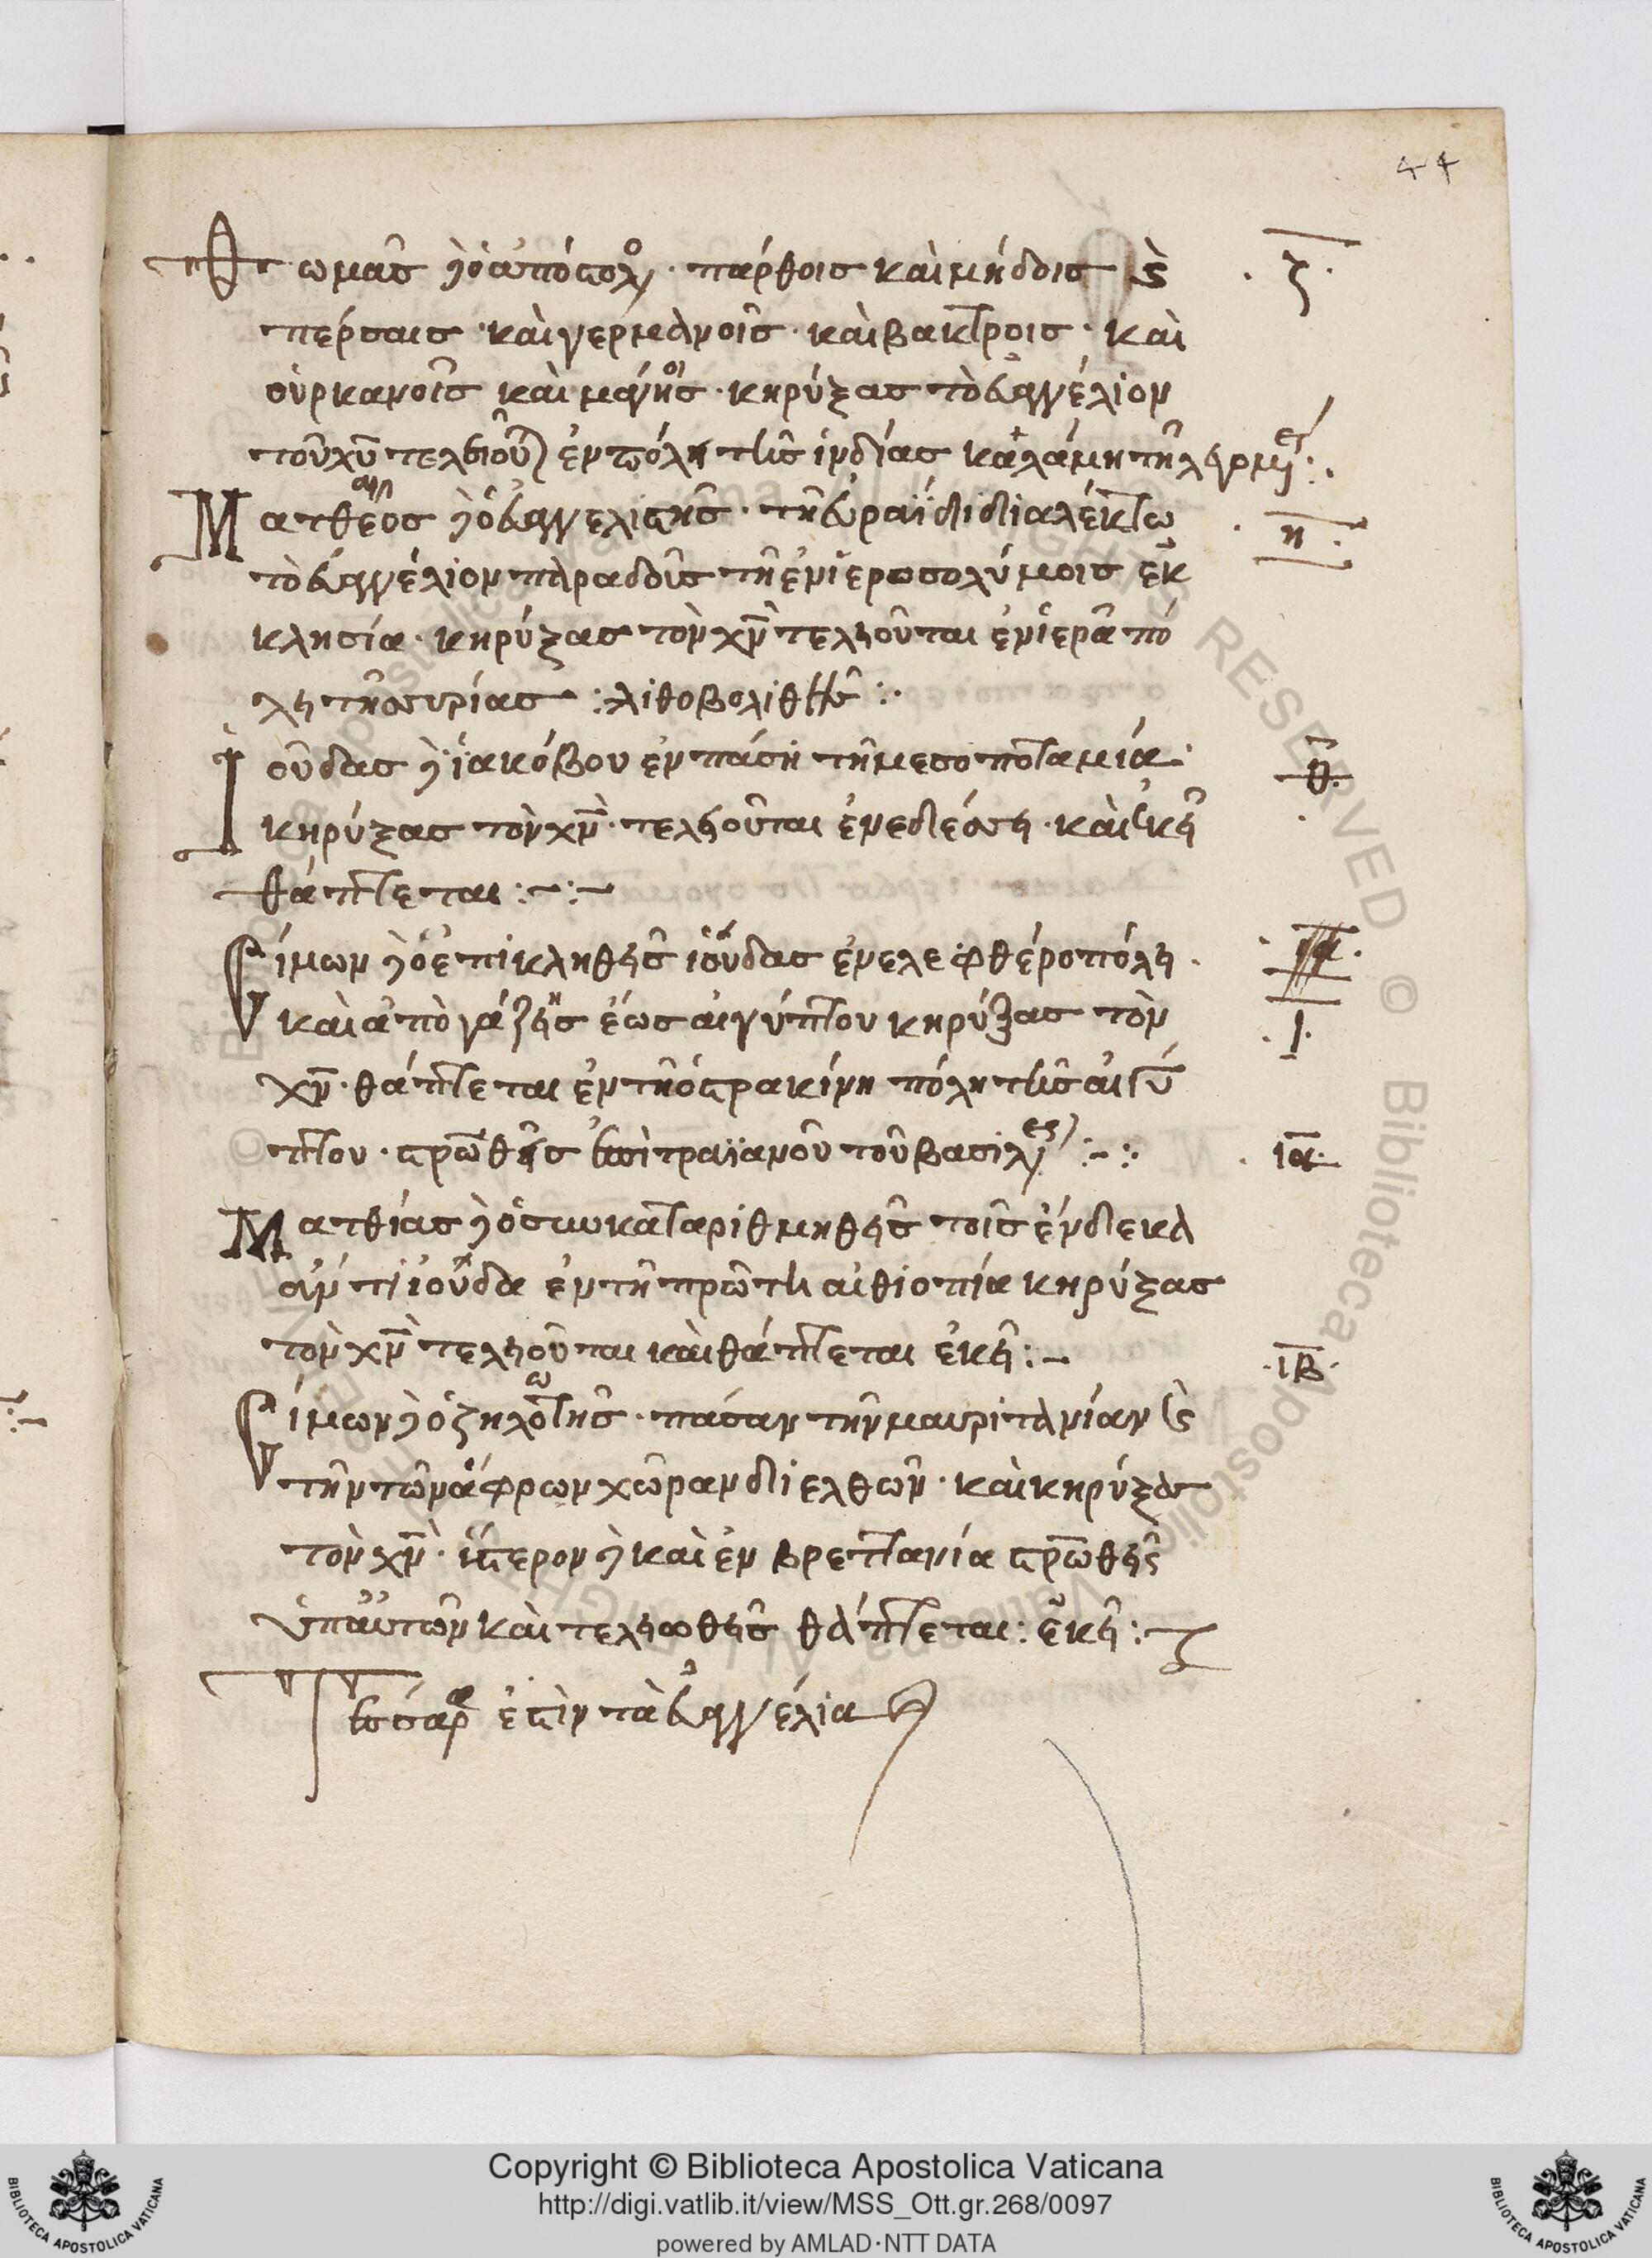 44
Θωμᾶς δὲ ὁ ἀπόστολος· πάρθοις καὶ μήδοις καὶ ·ζ·
πέρσαις· καὶ γερμανοῖς· καὶ βάκτροις· καὶ
οὐρκανοῖς καὶ μάγοις· κηρύξας τὸ εὐαγγέλιον
τοῦ χυ τελειοῦται ἐν πόλει τῆς ἰνδίας καλάμη τῇ
Ματθεος δὲ ὁ εὐαγγελιστὴς· τῇ ἑβραΐδι διαλέκτω ·η·
τὸ εὐαγγέλιον παραδοὺς τῇ ἐν ἱεροσολύμοις ἐκ
κλησία· κηρύξας τὸν χν τελειοῦται ἐν ἱερᾶ πό
λει τῆς συρίας : λιθοβοληθεὶς :·
Ἰούδας δὲ ἰακόβου ἐν πάση τῇ μεσοποταμία· θ·
κηρύξας τὸν χν· τελειοῦται ἐν εδέση· καὶ ἐκεῖ
θάπτεται :~:~
Σίμων δὲ ὁ ἐπικληθεὶς ἰούδας ἐν ελεφθέροπόλει·
καὶ ἀπὸ γάζης ἕως αἰγύπτου κηρύξας τὸν ·ι·
χν· θάπτεται ἐν τῇ ὀστρακίνη πόλει τῆς αἰγύ
πτου· στρωθεὶς ἐπὶ τραϊανοῦ τοῦ βασιλέως :~: ια·
Ματθίας δὲ ὁ συγκαταριθμηθεὶς τοῖς ἕνδεκα
ἀντὶ ἰούδα ἐν τῇ πρώτη αἰθιοπία κηρύξας
τὸν χν τελειοῦται καὶ θάπτεται ἐκεῖ :~ ·ιβ·
Σίμων δὲ ὁ ζηλωτὴς· πάσαν τὴν μαυριτανίαν καὶ
τὴν τῶν ἄφρων χῶραν διελθὼν· καὶ κηρύξας
τὸν χν· ὕστερον δὲ καὶ ἐν βρεττανία στρωθεὶς
ὑπ' αὐτῶν καὶ τελειωθεὶς θάπτεται : ἐκεῖ :~
Τέσσαρα ἐστὶν τὰ εὐαγγέλια
Copyright © Biblioteca Apostolica Vaticana
http://digi.vatlib.it/view/MSS_Ott.gr.268/0097
powered by AMLAD·NTT DATA